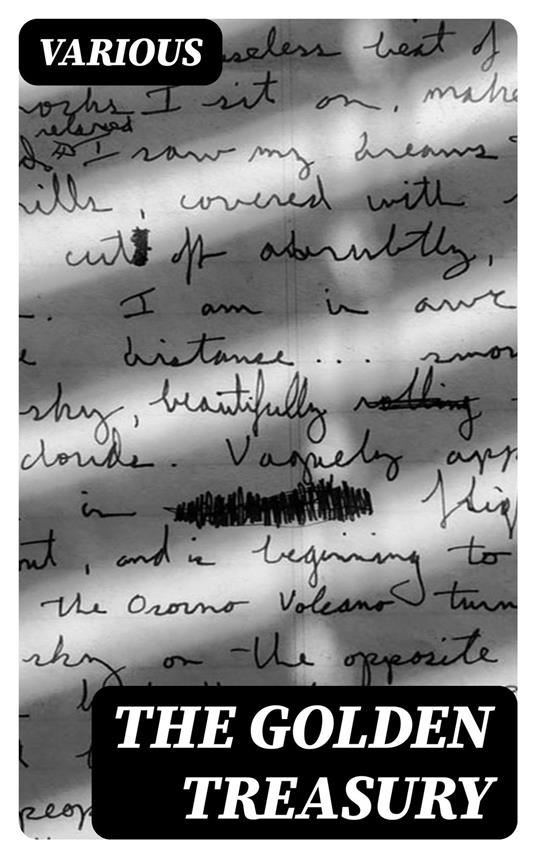 VARIOUS
useless beat of
works I sit on, make
relaxed
I saw my dreams
hills, covered with
cut off abruptly,
I am in awe
distance ....
sky, beautifully
clouds. Vaguely app
in
out, and is beginning to
the Osorno Volcano turn
sky on the opposite
THE GOLDEN
TREASURY
peop